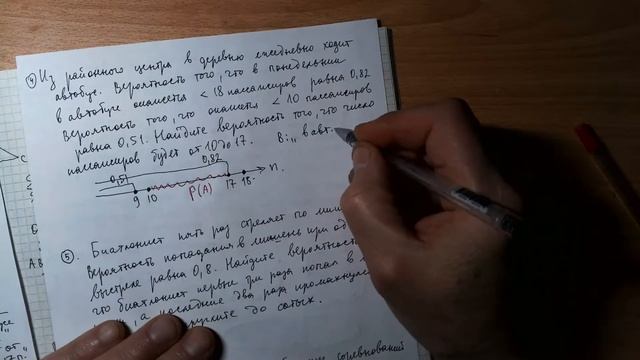 ④ Из районного центра в деревню ежедневно ходит
автобус. Вероятность того, что в понедельник
в автобусе окажется < 18 пассажиров равна 0,82
Вероятность того, что окажется < 10 пассажиров
равна 0,51. Найдите вероятность того, что число
пассажиров будет от 10 до 17. B: „ в авт.
0,51 0,82
9 10 P(A) 17 18 n.
⑤. Биатлонист пять раз стреляет по
Вероятность попадания в мишень при
выстреле равна 0,8. Найдите вероятность
что биатлонист первые три раза попал в
а последние два раза промахнулся
до сотых.
соревнований